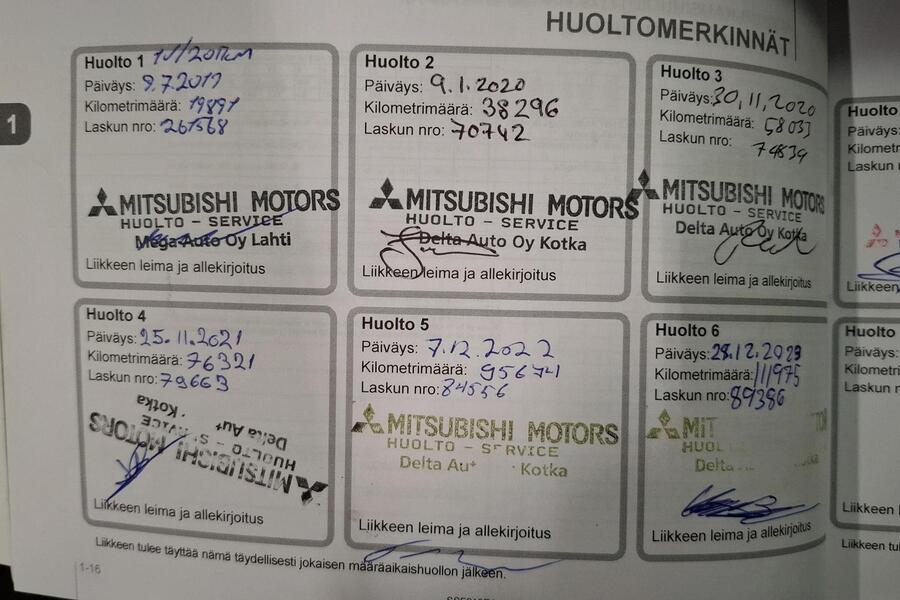 HUOLTOMERKINNÄT
1
Huolto 1 1V/20Tkm
Päiväys: 9.7.2019
Kilometrimäärä: 19891
Laskun nro: 261568
MITSUBISHI MOTORS
HUOLTO - SERVICE
Mega-Auto Oy Lahti
Liikkeen leima ja allekirjoitus
Huolto 2
Päiväys: 9.1.2020
Kilometrimäärä: 38296
Laskun nro: 70742
MITSUBISHI MOTORS
HUOLTO - SERVICE
Delta Auto Oy Kotka
Liikkeen leima ja allekirjoitus
Huolto 3
Päiväys: 30.11.2020
Kilometrimäärä: 58033
Laskun nro: 74834
MITSUBISHI MOTORS
HUOLTO - SERVICE
Delta Auto Oy Kotka
Liikkeen leima ja allekirjoitus
Huolto
Päiväys:
Kilometr
Laskun n
Liikkeen
Huolto 4
Päiväys: 25.11.2021
Kilometrimäärä: 76321
Laskun nro: 79663
MITSUBISHI MOTORS
HUOLTO - SERVICE
Delta Aut Kotka
Liikkeen leima ja allekirjoitus
Huolto 5
Päiväys: 7.12.2022
Kilometrimäärä: 95674
Laskun nro: 84556
MITSUBISHI MOTORS
HUOLTO - SERVICE
Delta Aut Kotka
Liikkeen leima ja allekirjoitus
Huolto 6
Päiväys: 28.12.2023
Kilometrimäärä: 111975
Laskun nro: 89386
MIT
HUOL
Delta
Liikkeen leima ja allekirjoitus
Huolto
Päiväys:
Kilometr
Laskun n
Liikkeen
Liikkeen tulee täyttää nämä täydellisesti jokaisen määräaikaishuollon jälkeen.
Liikkeen tu
1-16